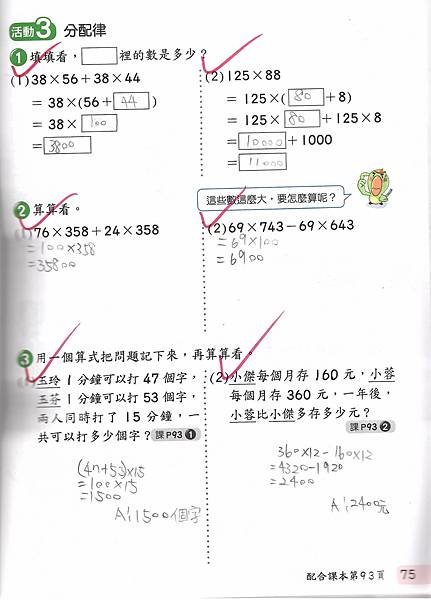 活動3 分配律
1 填填看，□裡的數是多少？
(1) 38×56＋38×44
＝38×(56＋44)
＝38×100
＝3800
(2) 125×88
＝125×(80＋8)
＝125×80＋125×8
＝10000＋1000
＝11000
這些數這麼大，要怎麼算呢？
2 算算看。
(1) 76×358＋24×358
=100×358
=35800
(2) 69×743－69×643
=69×100
=6900
3 用一個算式把問題記下來，再算算看。
(1) 玉玲1分鐘可以打47個字，
玉芬1分鐘可以打53個字，
兩人同時打了15分鐘，一
共可以打多少個字？課P93 1
(47+53)×15
=100×15
=1500
A:1500個字
(2) 小傑每個月存160元，小蓉
每個月存360元，一年後，
小蓉比小傑多存多少元？
課P93 2
360×12-160×12
=4320-1920
=2400
A:2400元
配合課本第93頁 75